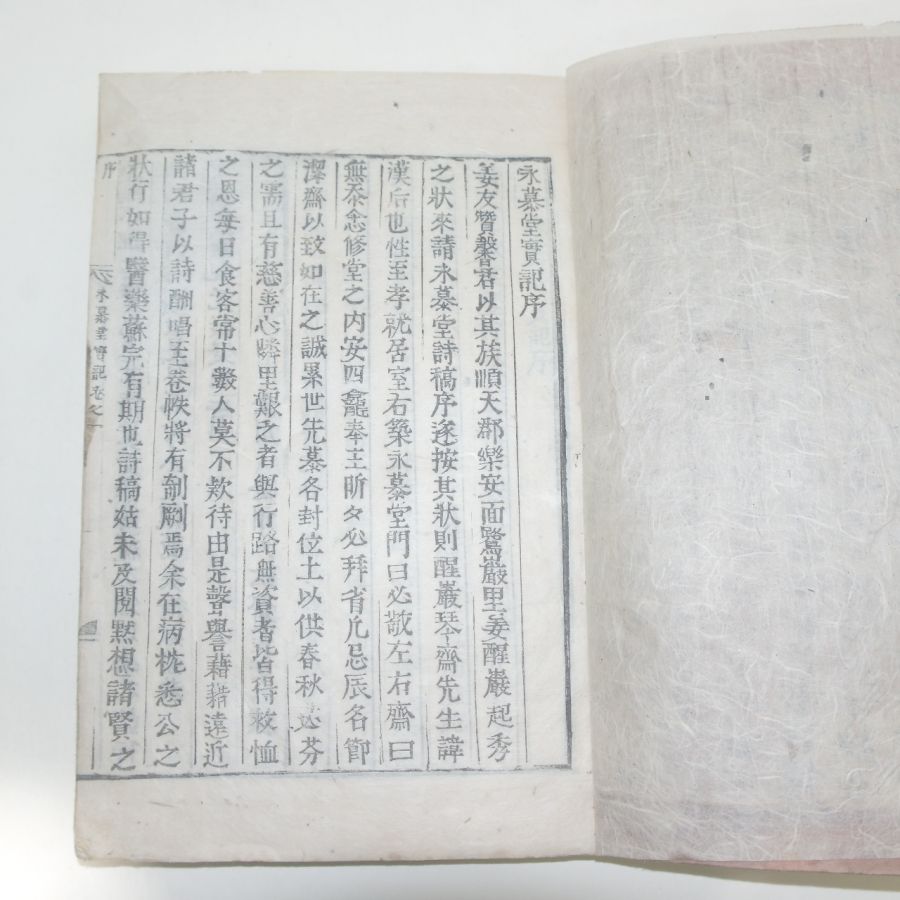 永慕堂實記序
姜友贊馨君以其族順天郡樂安面鷲巖里姜醒巖起秀
之狀來請永慕堂詩稿序遂按其狀則醒巖琴齋先生諱
漢后也性至孝就居室右築永慕堂門曰必敬左右齋曰
無忝念修堂之内安四龕奉主昕夕必拜省凡忌辰名節
潔齋以致如在之誠累世先墓各封位土以供春秋苾芬
之需且有慈善心隣里艱乏者與行路無資者皆得救恤
之恩每日食客常十數人莫不欵待由是聲譽藉藉遠近
諸君子以詩酬唱至卷帙將有剞劂焉余在病枕悉公之
狀行如得醫藥蘇完有期也詩稿姑未及閱黙想諸賢之
序
永慕堂實記卷之一